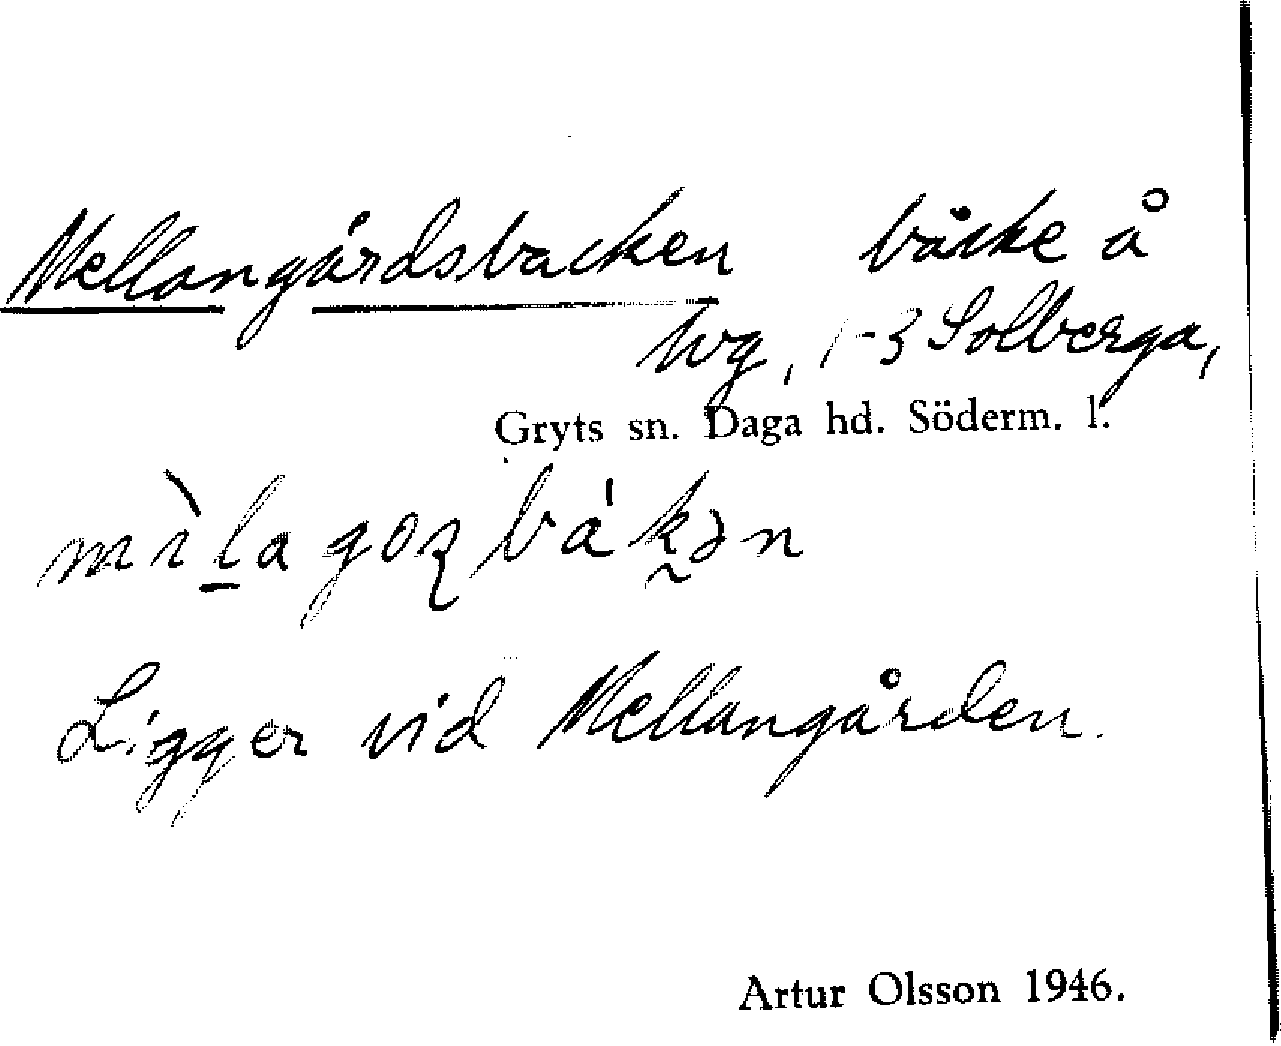 Mellangårdsbacken backe å
vvg, 1-3 Solberga,
Gryts sn. Daga hd. Söderm. l.
Ligger vid Mellangården.
Artur Olsson 1946.